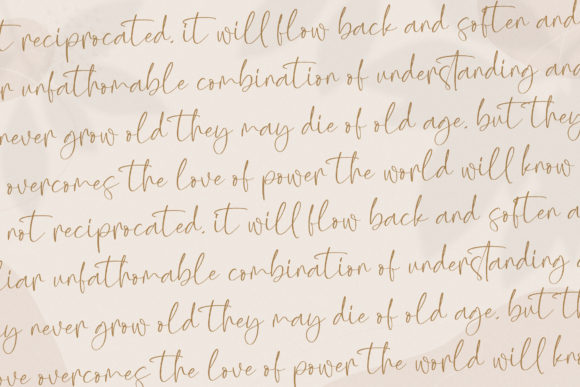 t reciprocated. it will flow back and soften and
r unfathomable combination of understanding and
never grow old they may die of old age. but they
overcomes the love of power the world will know
not reciprocated. it will flow back and soften a
liar unfathomable combination of understanding
y never grow old they may die of old age. but th
ove overcomes the love of power the world will kno